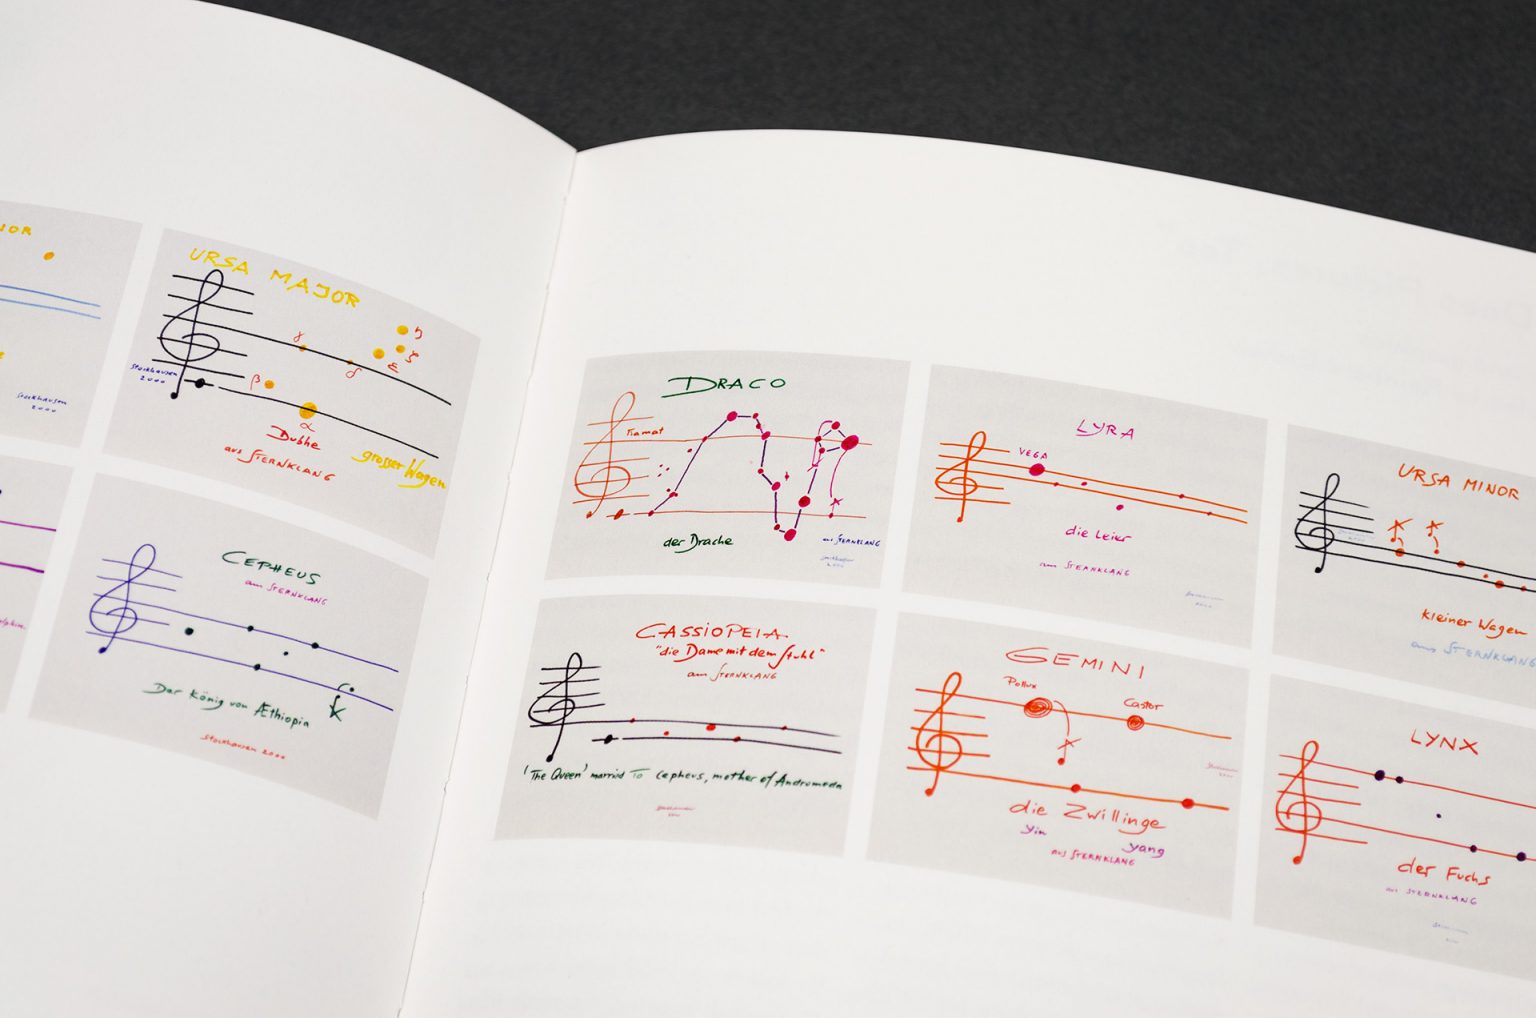 URSA MAJOR
γ
δ
η
ζ
ε
β
α
Stockhausen
2000
Dubhe
aus STERNKLANG
grosser Wagen
Stockhausen
2000
CEPHEUS
aus STERNKLANG
Der König von Æthiopia
Stockhausen 2000
DRACO
Tiamat
der Drache
aus STERNKLANG
Stockhausen
2000
LYRA
VEGA
die Leier
aus STERNKLANG
URSA MINOR
kleiner Wagen
aus STERNKLANG
CASSIOPEIA
"die Dame mit dem Stuhl"
aus STERNKLANG
'The Queen' married to Cepheus, mother of Andromeda
GEMINI
Pollux
Castor
die Zwillinge
yin
yang
aus STERNKLANG
LYNX
der Fuchs
aus STERNKLANG